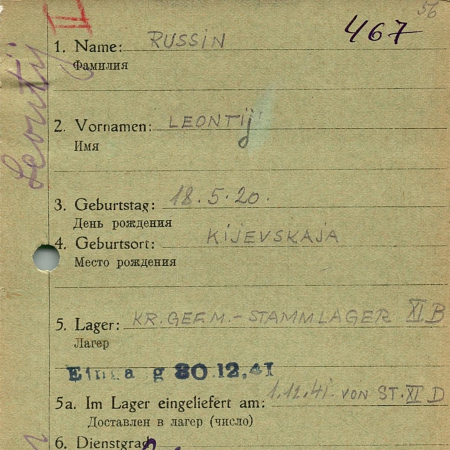 56
467
II
Leontij
1. Name: RUSSIN
Фамилия
2. Vornamen: LEONTIJ
Имя
3. Geburtstag: 18.5.20.
День рождения
4. Geburtsort: KIJEVSKAJA
Место рождения
5. Lager: KR.GEF.M.-STAMMLAGER XI B
Лагер
Eingang 30.12.41
5a. Im Lager eingeliefert am: 1.12.41. VON ST. XI D
Доставлен в лагер (число)
6. Dienstgrad